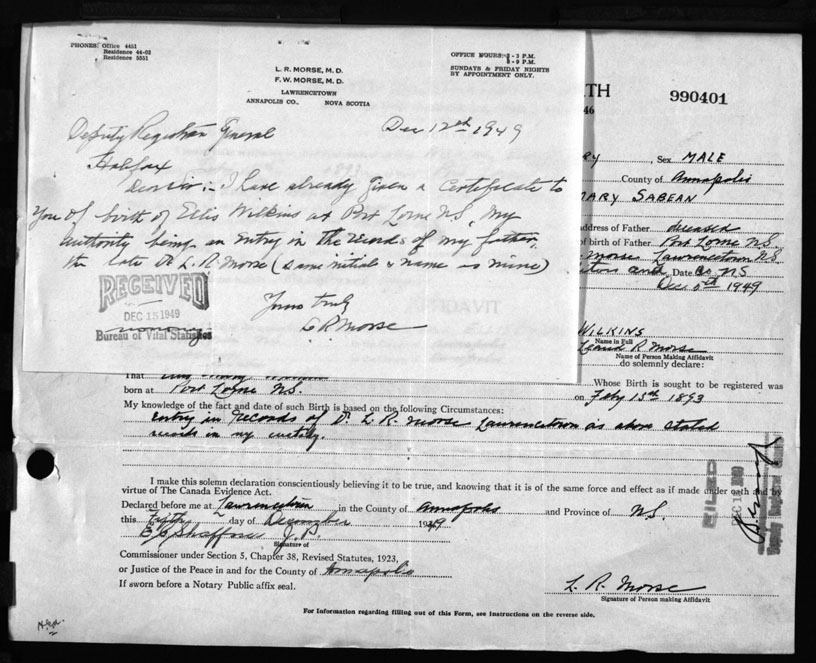 PHONES: Office 4451
Residence 44-02
Residence 5551
L. R. MORSE, M.D.
F. W. MORSE, M.D.
LAWRENCETOWN
ANNAPOLIS CO., NOVA SCOTIA
OFFICE HOURS: - 3 P.M.
- 9 P.M.
SUNDAYS & FRIDAY NIGHTS
BY APPOINTMENT ONLY.
Dec 12th 1949
Deputy Registrar General
Halifax
Dear Sir:- I have already given a certificate to
you of birth of Ellis Wilkins at Port Lorne N.S. My
authority being an entry in the records of my father,
the late Dr L. R. Morse (same initial & name as mine)
Yours truly
L R Morse
RECEIVED
DEC 15 1949
Bureau of Vital Statistics
TH
46
990401
RY, Sex MALE
County of Annapolis
MARY SABEAN
address of Father deceased
of birth of Father Port Lorne N.S.
Morse Lawrencetown N.S.
and Date Co NS
Dec 5th 1949
AFFIDAVIT
WILKINS
Name in Full
R Morse
Name of Person Making Affidavit
do solemnly declare:
That
Whose Birth is sought to be registered was
born at Port Lorne N.S. on Feby 13th 1893
My knowledge of the fact and date of such Birth is based on the following Circumstances:
Entry in records of Dr. L. R. Morse Lawrencetown as above stated
records in my custody.
I make this solemn declaration conscientiously believing it to be true, and knowing that it is of the same force and effect as if made under oath and by
virtue of The Canada Evidence Act.
Declared before me at Lawrencetown in the County of Annapolis and Province of N.S.
this Fifth day of December 1949
J. P.
Signature of
Commissioner under Section 5, Chapter 38, Revised Statutes, 1923,
or Justice of the Peace in and for the County of Annapolis
If sworn before a Notary Public affix seal.
L. R. Morse
Signature of Person making Affidavit
For Information regarding filling out of this Form, see Instructions on the reverse side.
FILED